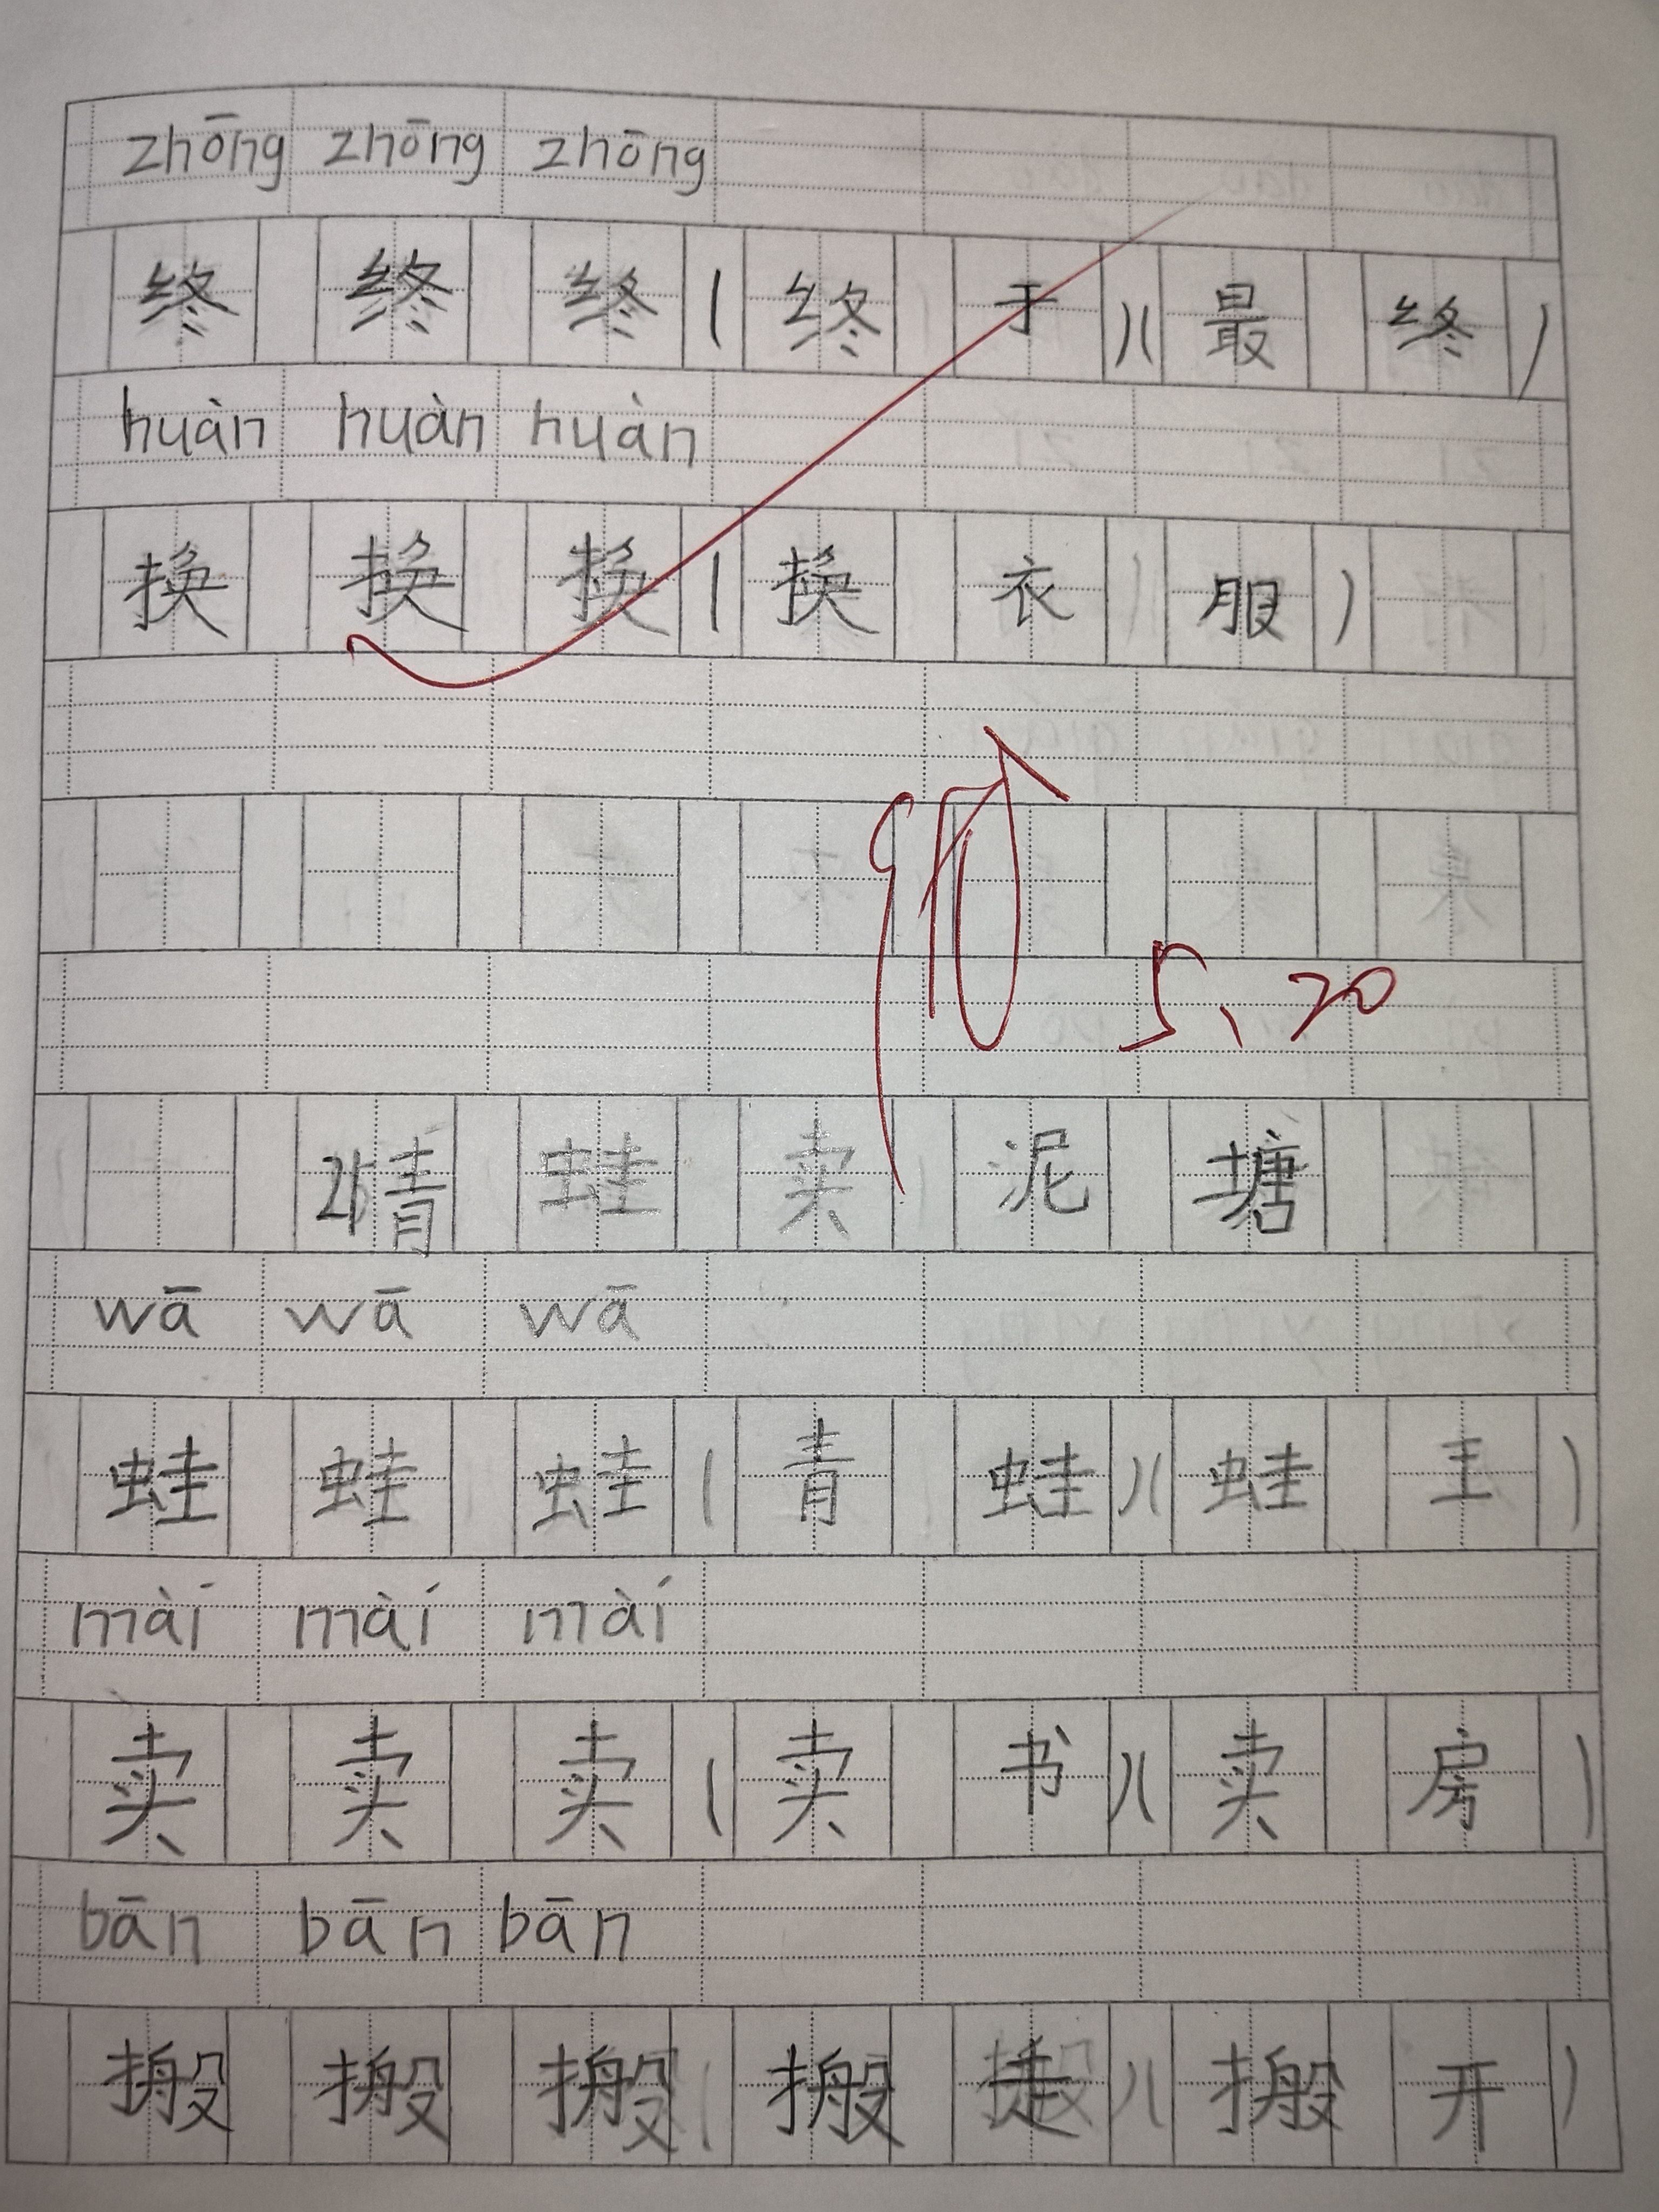 zhōng zhōng zhōng
终 终 终 (终 于)(最 终)
huàn huàn huàn
换 换 换 (换 衣 服)
5、20
24 青 蛙 卖 泥 塘
wā wā wā
蛙 蛙 蛙 (青 蛙)(蛙 王)
mài mài mài
卖 卖 卖 (卖 书)(卖 房)
bān bān bān
搬 搬 搬 (搬 走)(搬 开)